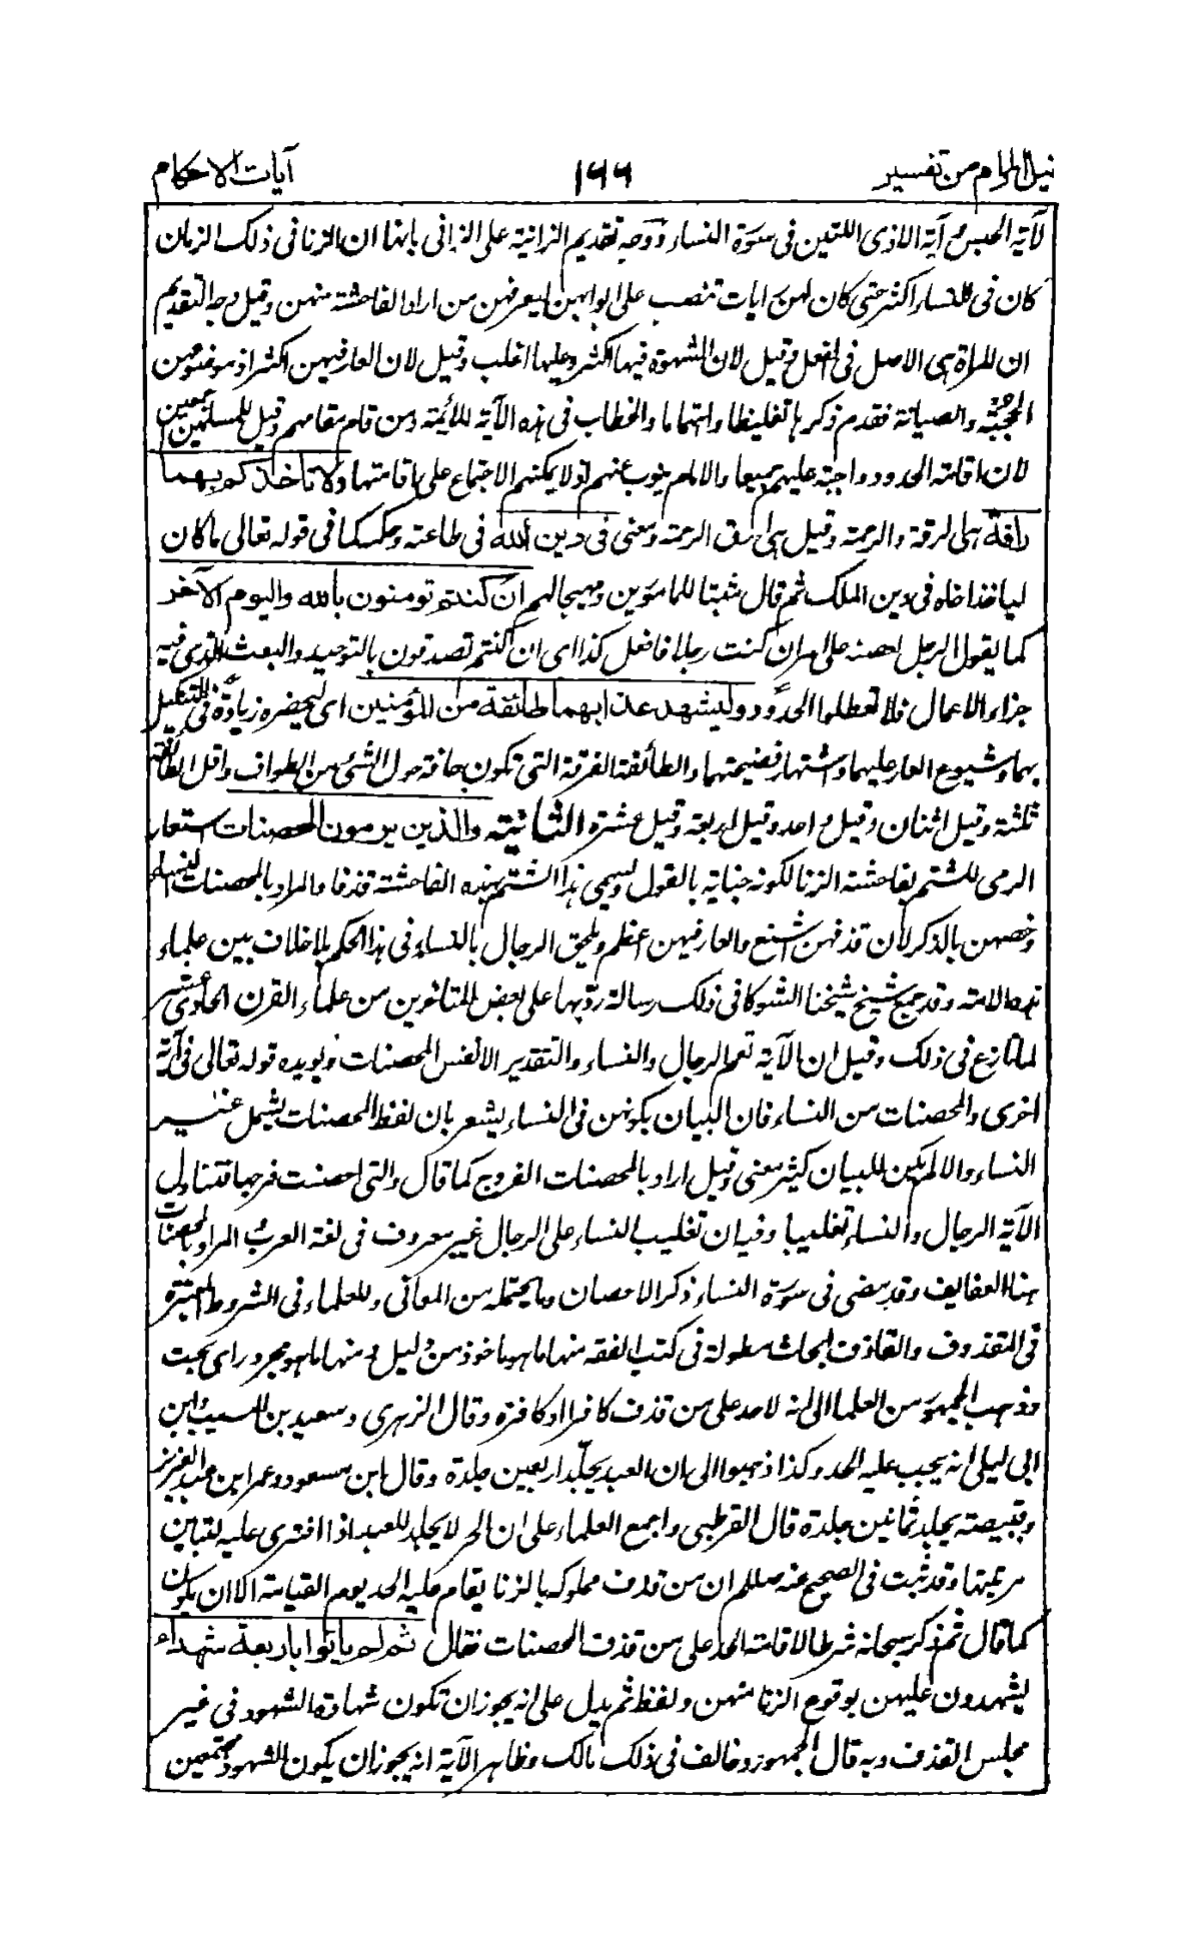 نيل المرام من تفسير ١٦٦ آيات الاحكام
لآية الحبس و آية الاذى اللتين فى سورة النساء ووجه تقديم الزانية على الزانى بانها ان الزنا فى ذلك الزمان
كان فى النساء اكثر حتى كان لهن رايات تنصب على ابوابهن ليعرفهن من اراد الفاحشة منهن وقيل وجه التقديم
ان المراة هى الاصل فى الفعل وقيل لان الشهوة فيها اكثر وعليها اغلب وقيل لان العار فيهن اكثر اذ موضوعهن
الحجبة والصيانة فقدم ذكرها تغليظا واهتماما والخطاب فى هذه الآية للائمة ومن قام مقامهم وقيل للمسلمين اجمعين
لان اقامة الحدود واجبة عليهم جميعا والامام ينوب عنهم اذ لا يمكنهم الاجتماع على اقامتها ولا تاخذكم بهما
رافة هى الرقة والرحمة وقيل هى ارق الرحمة ومعنى فى دين الله فى طاعته وحكمه كما فى قوله تعالى ما كان
لياخذ اخاه فى دين الملك ثم قال مثبتا للمامورين ومهيجا لهم ان كنتم تومنون بالله واليوم الآخر
كما يقول الرجل لحضه على امر ان كنت رجلا فافعل كذا اى ان كنتم تصدقون بالتوحيد والبعث الذى فيه
جزاء الاعمال فلا تعطلوا الحدود وليشهد عذابهما طائفة من المؤمنين اى ليحضره زيادة فى التنكيل
بهما وشيوع العار عليهما واشتهار فضيحتهما والطائفة الفرقة التى تكون حافة حول الشئ من الطواف واقل الطائفة
ثلثة وقيل اثنان وقيل واحد وقيل اربعة وقيل عشرة الثانية والذين يرمون المحصنات استعار
الرمى للشتم بفاحشة الزنا لكونه جناية بالقول ويسمى هذا الشتم بهذه الفاحشة قذفا والمراد بالمحصنات النساء
وخصهن بالذكر لأن قذفهن اشنع والعار فيهن اعظم ويلحق الرجال بالنساء فى هذا الحكم بلا خلاف بين علماء
هذه الامة وقد جمع شيخ شيخنا الشوكانى فى ذلك رسالة رد بها على بعض المتاخرين من علماء القرن الحادى عشر
لما نازع فى ذلك وقيل ان الآية تعم الرجال والنساء والتقدير الانفس المحصنات ويويده قوله تعالى فى آية
اخرى والمحصنات من النساء فان البيان بكونهن من النساء يشعر بان لفظ المحصنات يشمل غير
النساء والا لم يكن للبيان كثير معنى وقيل اراد بالمحصنات الفروج كما قال والتى احصنت فرجها فتتناول
الآية الرجال والنساء تغليبا وفيه ان تغليب النساء على الرجال غير معروف فى لغة العرب والمراد بالمحصنات
هنا العفايف وقد مضى فى سورة النساء ذكر الاحصان وما يحتمله من المعانى وللعلماء فى الشروط المعتبرة
فى المقذوف والقاذف ابحاث مطولة فى كتب الفقه منها ما هو ماخوذ من دليل ومنها ما هو مجرد راى بحت
وذهب الجمهور من العلماء الى انه لا حد على من قذف كافرا او كافرة وقال الزهرى وسعيد بن المسيب وابن
ابى ليلى انه يجب عليه الحد وكذا ذهبوا الى ان العبد يجلد اربعين جلدة وقال ابن مسعود وعمر ابن عبد العزيز
وقبيصة يجلد ثمانين جلدة قال القرطبى واجمع العلماء على ان الحر لا يجلد للعبد اذا افترى عليه لتباين
مرتبتهما وقد ثبت فى الصحيح عنه صللم ان من قذف مملوكه بالزنا يقام عليه الحد يوم القيامة الا ان يكون
كما قال ثم ذكر سبحانه شرطا لاقامة الحد على من قذف المحصنات فقال ثم لم ياتوا باربعة شهداء
يشهدون عليهن بوقوع الزنا منهن ولفظ ثم يدل على انه يجوز ان تكون شهادة الشهود فى غير
مجلس القذف وبه قال الجمهور وخالف فى ذلك مالك وظاهر الآية انه يجوز ان يكون الشهود مجتمعين